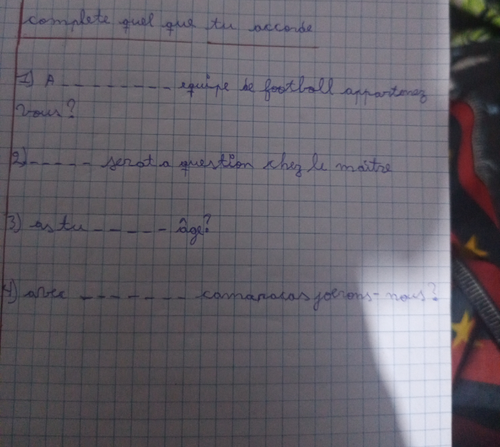 complete quel que tu accorde
1) A _ _ _ _ _ _ _ _ equipe de football appartenez
vous?
2) _ _ _ _ _ serat a question chez le maître
3) as tu _ _ _ _ _ _ âge?
4) avec _ _ _ _ _ _ _ camaracas joerons-nous?